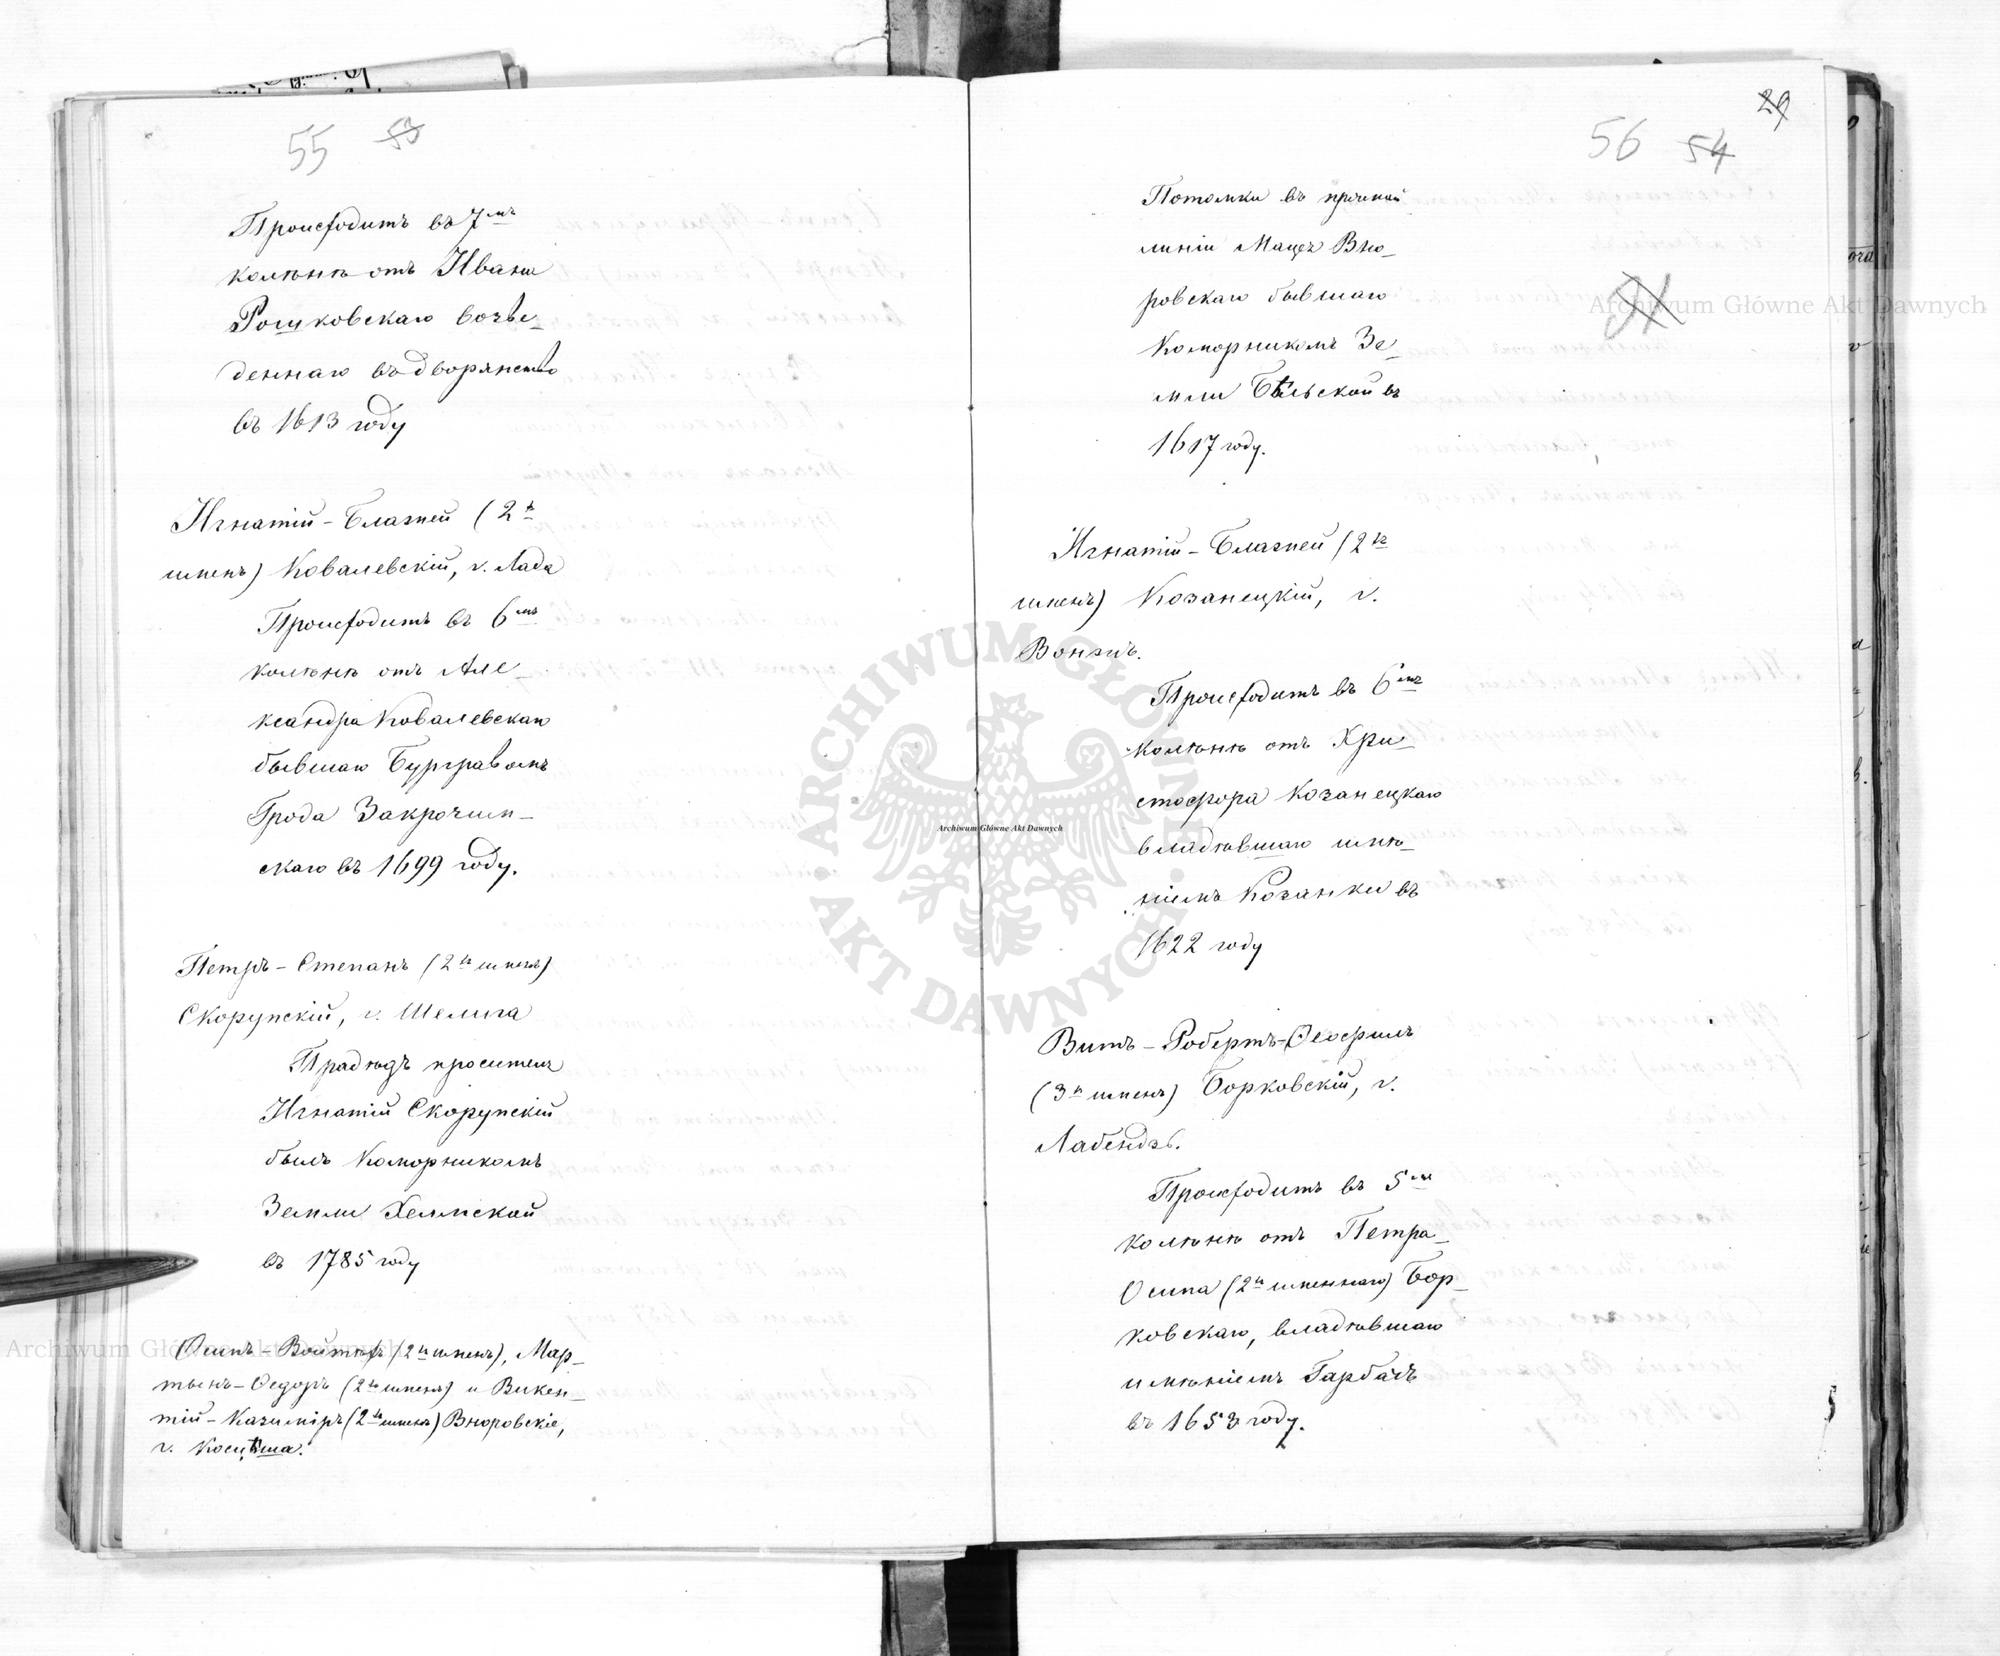 55 53
Происходитъ въ 7мъ
колѣнѣ отъ Ивана
Рошковскаго возве-
деннаго въ дворянство
въ 1613 году
Игнатій-Блажей (2хъ
именъ) Ковалевскій, г. Лада
Происходитъ въ 6мъ
колѣнѣ отъ Але-
ксандра Ковалевскаго
бывшаго Бургравомъ
Града Закрочим-
скаго въ 1699 году.
Петръ-Степанъ (2хъ именъ)
Скорупскій, г. Шелига
Прадѣдъ просителя
Игнатій Скорупскій
былъ Коморникомъ
Земли Хелмской
въ 1785 году
Осипъ-Войтѣхъ (2хъ именъ), Мар-
тынъ-Ѳедоръ (2хъ именъ) и Викен-
тій-Казиміръ (2хъ именъ) Вноровскіе,
г. Косцѣша.
29
56 54
Потомки въ прямой
линіи Мацея Вно-
ровскаго бывшаго
Коморникомъ Зе-
мли Бѣльской въ
1617 году.
Игнатій-Блажей (2хъ
именъ) Козанецкій, г.
Вонжъ.
Происходитъ въ 6мъ
колѣнѣ отъ Хри-
стофора Козанецкаго
владѣвшаго имѣ-
ніемъ Козанки въ
1622 году
Витъ-Робертъ-Ѳеофилъ
(3хъ именъ) Борковскій, г.
Лабендзь.
Происходитъ въ 5мъ
колѣнѣ отъ Петра-
Осипа (2хъ именнаго) Бор-
ковскаго, владѣвшаго
имѣніемъ Гарбачъ
въ 1653 году.
Archiwum Główne Akt Dawnych
Archiwum Główne Akt Dawnych
Archiwum Główne Akt Dawnych
ARCHIWUM GŁÓWNE AKT DAWNYCH